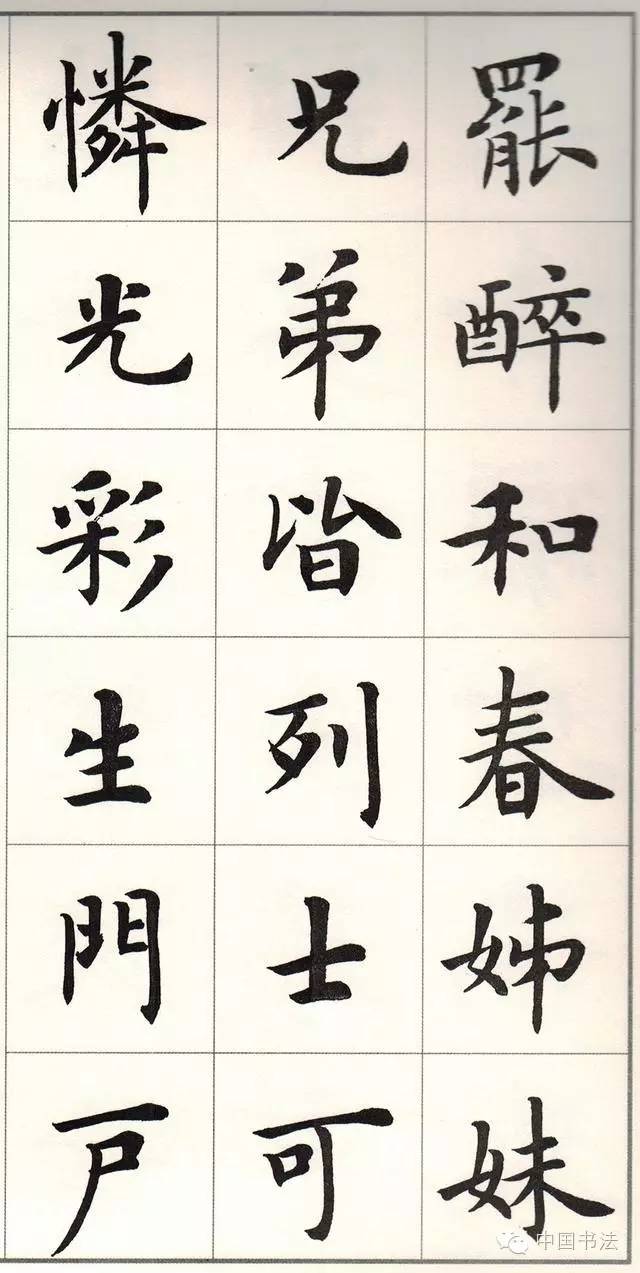 罷醉和春姊妹
兄弟皆列士可
憐光彩生門戶
中国书法